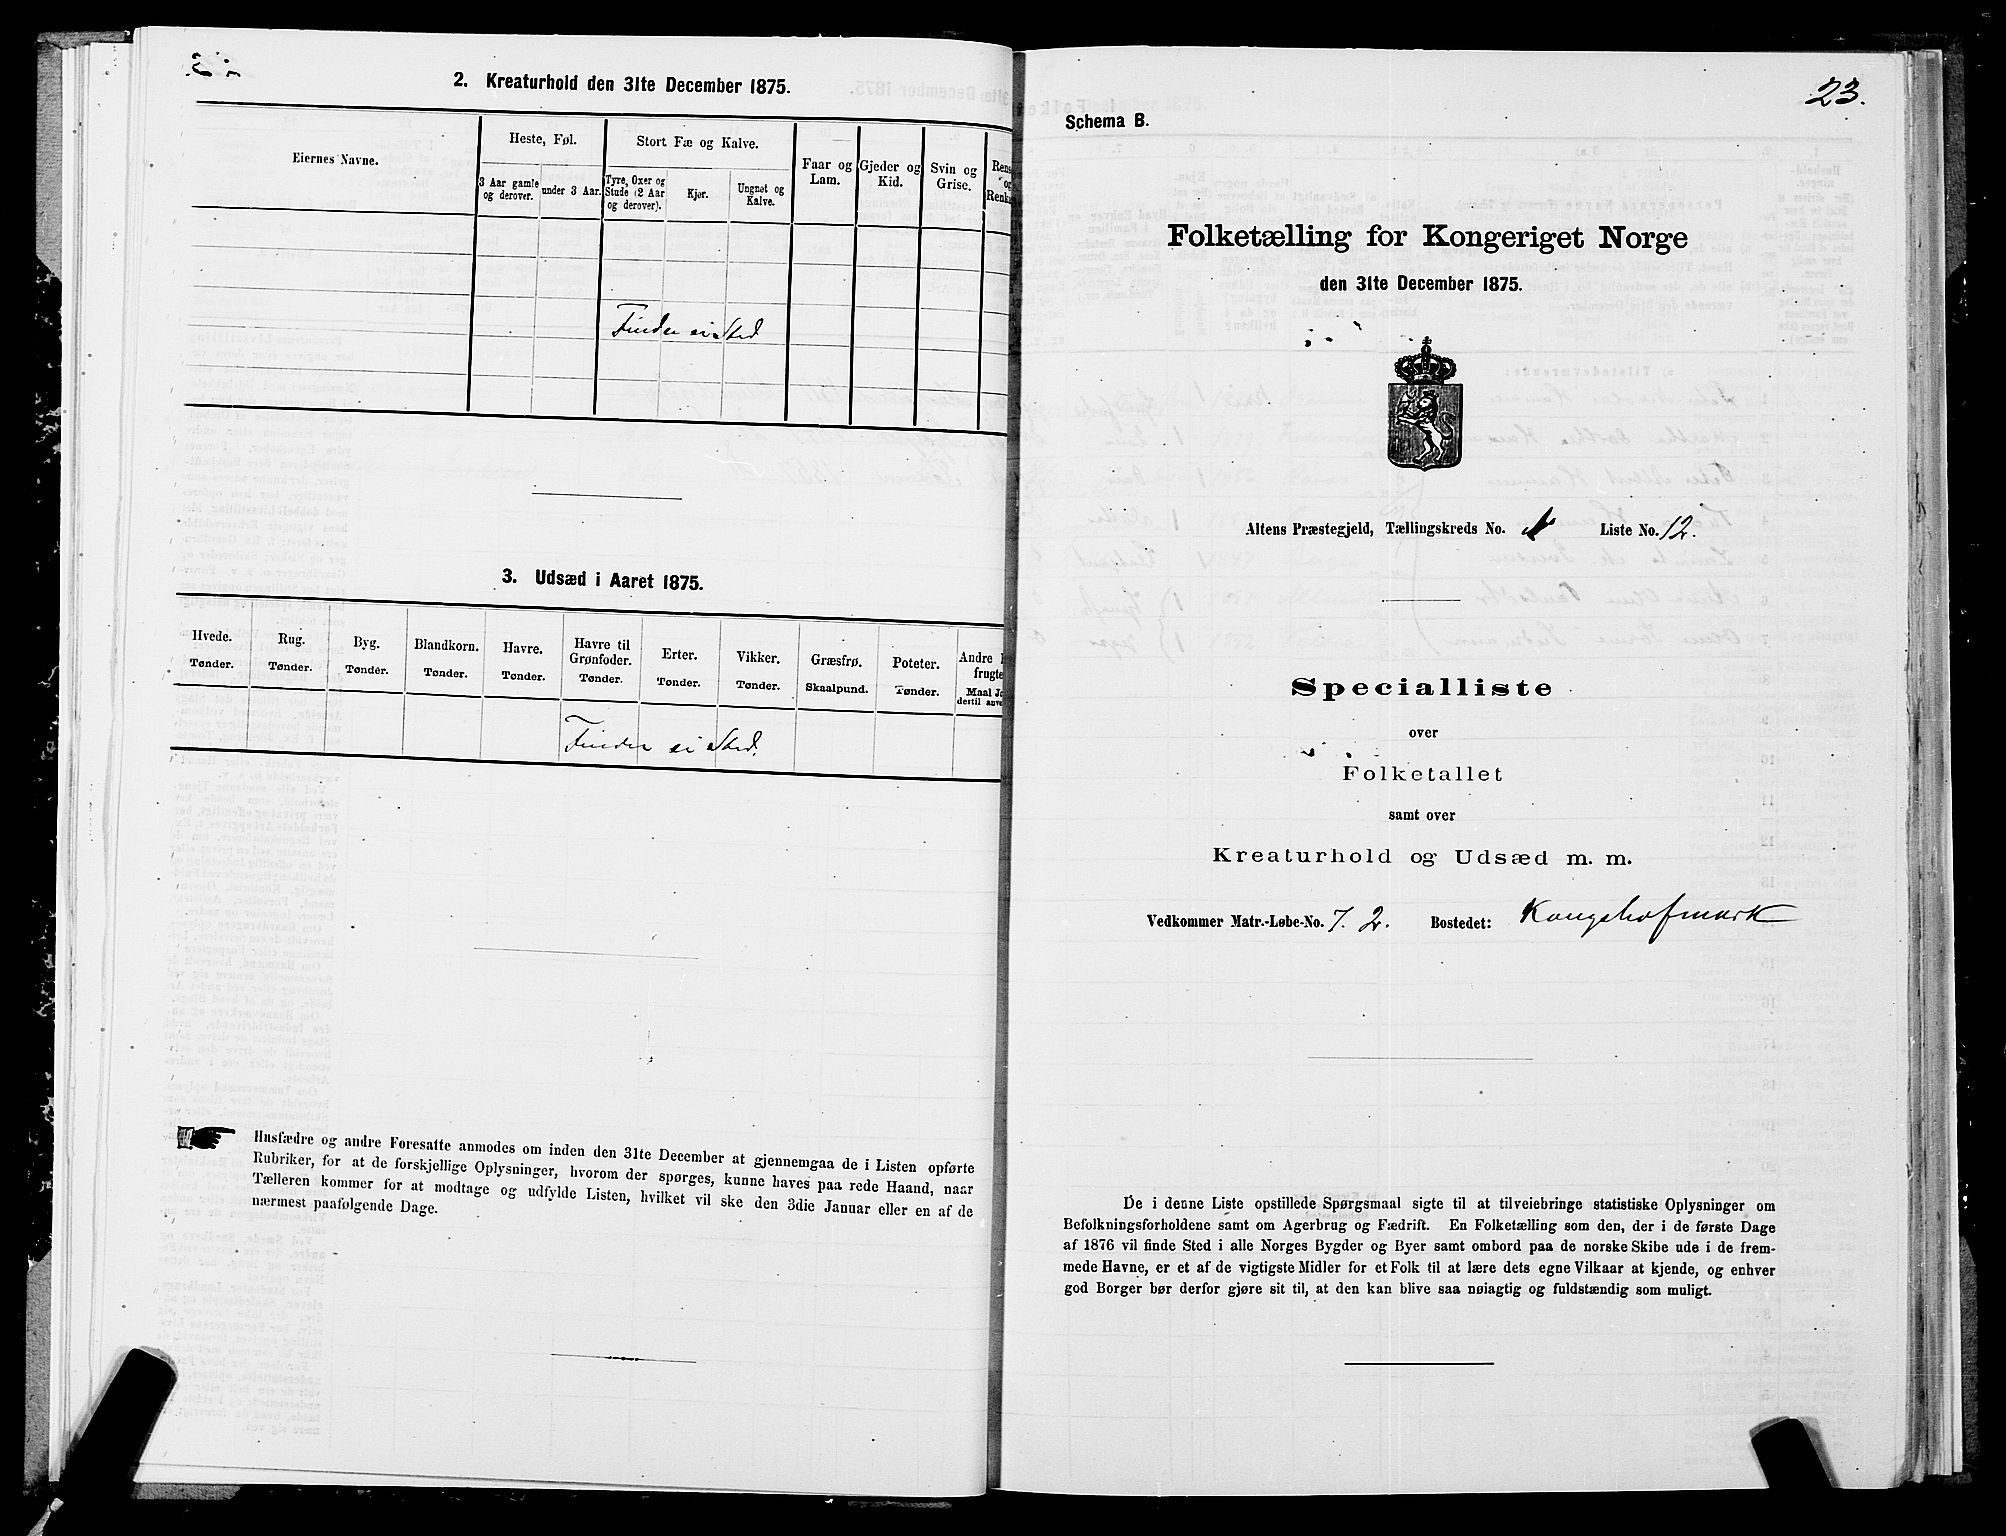 2. Kreaturhold den 31te December 1875.
Eiernes Navne.
Heste, Føl.
Stort Fæ og Kalve.
Faar og
Lam.
Gjeder og
Kid.
Svin og
Grise.
Rens
og
Renka
3 Aar gamle
og derover.
under 3 Aar.
Tyre, Oxer og
Stude (2 Aar
og derover).
Kjør.
Ungnøt og
Kalve.
Finder ei Sted
3. Udsæd i Aaret 1875.
Hvede.
Tønder.
Rug.
Tønder.
Byg.
Tønder.
Blandkorn.
Tønder.
Havre.
Tønder.
Havre til
Grønfoder.
Tønder.
Erter.
Tønder.
Vikker.
Tønder.
Græsfrø.
Skaalpund.
Poteter.
Tønder.
Andre
frugte
Maal Jo
dertil anve
Finder ei Sted.
Husfædre og andre Foresatte anmodes om inden den 31te December at gjennemgaa de i Listen opførte
Rubriker, for at de forskjellige Oplysninger, hvorom der spørges, kunne haves paa rede Haand, naar
Tælleren kommer for at modtage og udfylde Listen, hvilket vil ske den 3die Januar eller en af de
nærmest paafølgende Dage.
23.
Schema B.
Folketælling for Kongeriget Norge
den 31te December 1875.
Altens Præstegjeld, Tællingskreds No. Liste No. 12.
Specialliste
over
Folketallet
samt over
Kreaturhold og Udsæd m. m.
Vedkommer Matr.-Løbe-No. 7. 2. Bostedet: Kongshofmark
De i denne Liste opstillede Spørgsmaal sigte til at tilveiebringe statistiske Oplysninger om
Befolkningsforholdene samt om Agerbrug og Fædrift. En Folketælling som den, der i de første Dage
af 1876 vil finde Sted i alle Norges Bygder og Byer samt ombord paa de norske Skibe ude i de frem-
mede Havne, er et af de vigtigste Midler for et Folk til at lære dets egne Vilkaar at kjende, og enhver
god Borger bør derfor gjøre sit til, at den kan blive saa nøiagtig og fuldstændig som muligt.